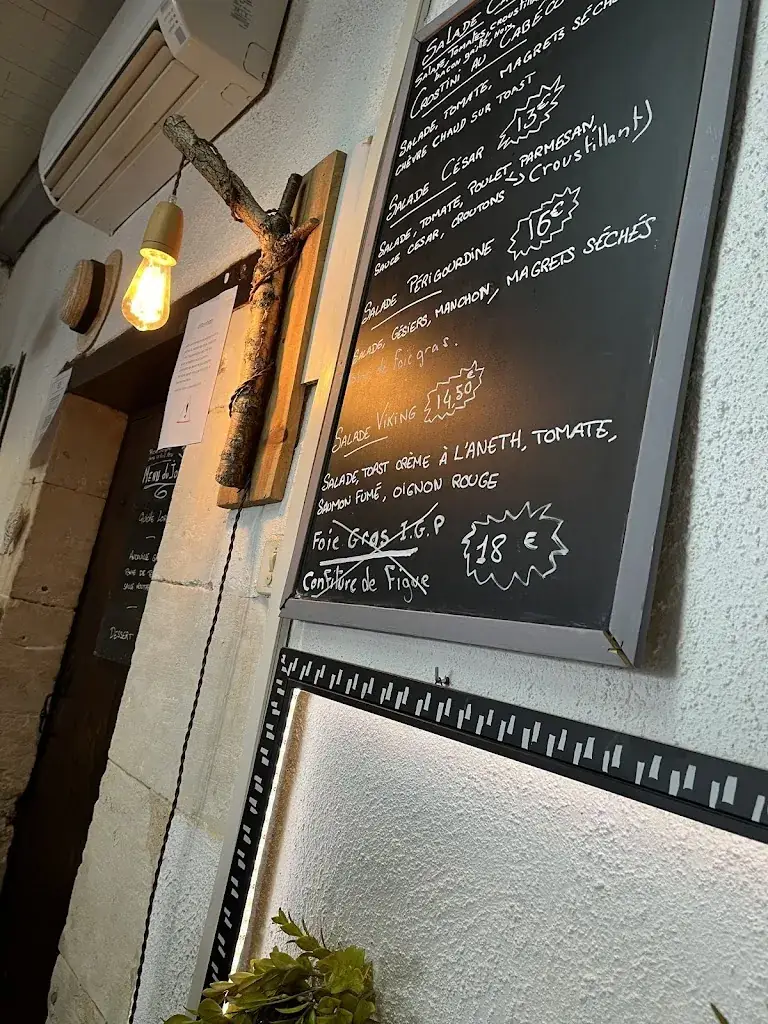 SALADE
SALADE, TOMATES, CROUSTILL
BACON GRILLÉ, NOIX
CROSTINI AU CABÉCOU
SALADE, TOMATE, MAGRETS SÉCHÉ
CHÈVRE CHAUD SUR TOAST
SALADE CÉSAR 13€
SALADE, TOMATE, POULET, PARMESAN,
SAUCE CÉSAR, CROUTONS → Croustillant)
SALADE PÉRIGOURDINE 16€
SALADE, GÉSIERS, MANCHON, MAGRETS SÉCHÉS
de foie gras.
SALADE VIKING 14,50€
SALADE, TOAST CRÈME À L'ANETH, TOMATE,
SAUMON FUMÉ, OIGNON ROUGE
Foie Gras I.G.P
Confiture de Figue 18 €
MENU du Jo
DESSERT